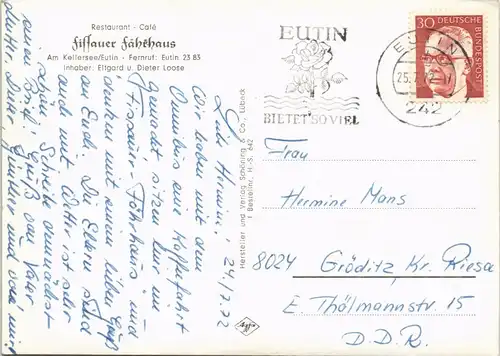 Restaurant - Café
Fissauer Fährhaus
Am Kellersee/Eutin - Fernruf: Eutin 23 85
Inhaber: Elfgard u. Dieter Loose
24/7.72
Liebe Hermine,
Wir haben mit dem
Omnibus eine Kaffeefahrt
gemacht sitzen hier im
Fissauer-Fährhaus und
denken mit einem lieben Gruß
an Euch. Die Eltern sind
auch mit. Wetter ist sehr
schön. Schreibe demnächst
einen Brief. Gruß von Vater
Mutter, Günther und
Hersteller und Verlag: Schöning & Co., Lübeck
Bestellnr. H.-S. 642
Agfa
EUTIN
BIETET SO VIEL
EUTIN
25.7.72
242
30 DEUTSCHE
BUNDESPOST
Frau
Hermine Mans
8024 Gröditz, Kr. Riesa
E. Thälmannstr. 15
D.D.R.